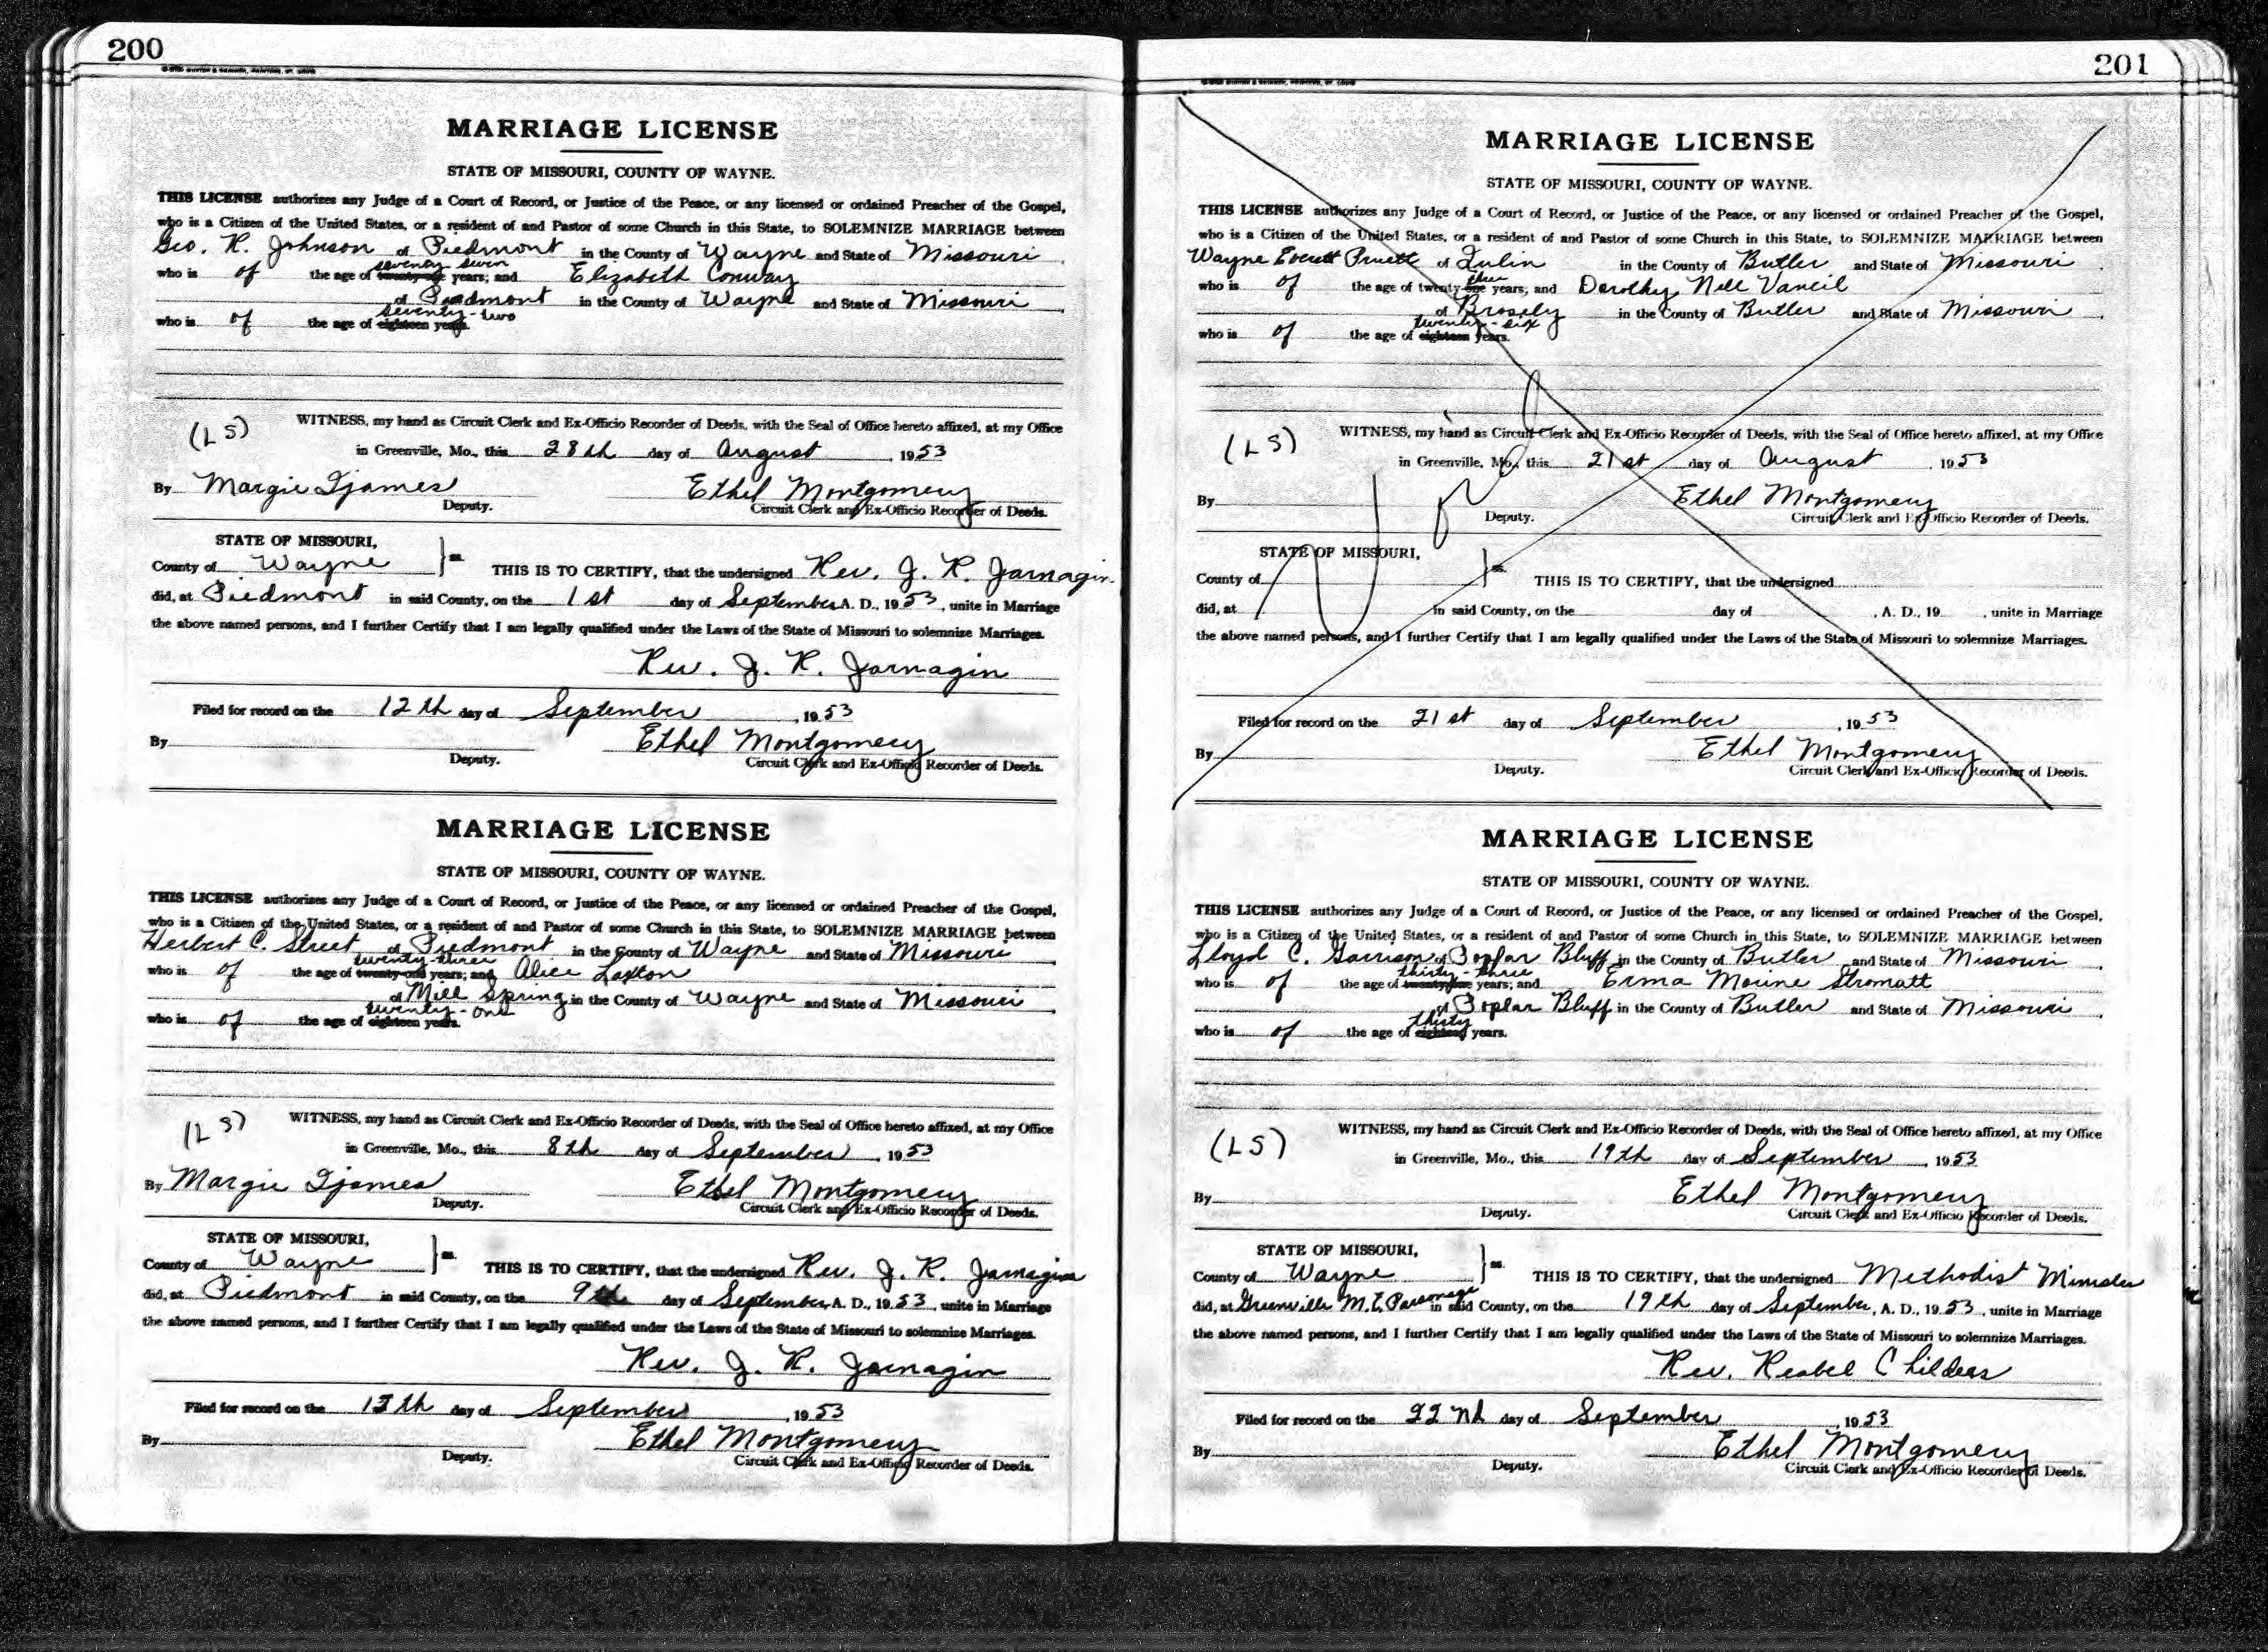 200
MARRIAGE LICENSE
STATE OF MISSOURI, COUNTY OF WAYNE.
THIS LICENSE authorizes any Judge of a Court of Record, or Justice of the Peace, or any licensed or ordained Preacher of the Gospel,
who is a Citizen of the United States, or a resident of and Pastor of some Church in this State, to SOLEMNIZE MARRIAGE between
Geo. R. Johnson of Piedmont in the County of Wayne and State of Missouri
seventy seven
who is of the age of twenty-one years; and Elizabeth Conway
of Piedmont in the County of Wayne and State of Missouri
seventy-two
who is of the age of eighteen years.
WITNESS, my hand as Circuit Clerk and Ex-Officio Recorder of Deeds, with the Seal of Office hereto affixed, at my Office
(L S)
in Greenville, Mo., this 28th day of August, 1953
By Margie Ijames Ethel Montgomery
Deputy. Circuit Clerk and Ex-Officio Recorder of Deeds.
STATE OF MISSOURI,
County of Wayne } ss. THIS IS TO CERTIFY, that the undersigned Rev. J. R. Jarnagin
did, at Piedmont in said County, on the 1st day of September A. D., 1953, unite in Marriage
the above named persons, and I further Certify that I am legally qualified under the Laws of the State of Missouri to solemnize Marriages.
Rev. J. R. Jarnagin
Filed for record on the 12th day of September, 1953
By Ethel Montgomery
Deputy. Circuit Clerk and Ex-Officio Recorder of Deeds.
MARRIAGE LICENSE
STATE OF MISSOURI, COUNTY OF WAYNE.
THIS LICENSE authorizes any Judge of a Court of Record, or Justice of the Peace, or any licensed or ordained Preacher of the Gospel,
who is a Citizen of the United States, or a resident of and Pastor of some Church in this State, to SOLEMNIZE MARRIAGE between
Herbert C. Street of Piedmont in the County of Wayne and State of Missouri
twenty-three
who is of the age of twenty-one years; and Alice Laxton
of Mill Spring in the County of Wayne and State of Missouri
twenty-one
who is of the age of eighteen years.
WITNESS, my hand as Circuit Clerk and Ex-Officio Recorder of Deeds, with the Seal of Office hereto affixed, at my Office
(L S)
in Greenville, Mo., this 8th day of September, 1953
By Margie Ijames Ethel Montgomery
Deputy. Circuit Clerk and Ex-Officio Recorder of Deeds.
STATE OF MISSOURI,
County of Wayne } ss. THIS IS TO CERTIFY, that the undersigned Rev. J. R. Jarnagin
did, at Piedmont in said County, on the 9th day of September A. D., 1953, unite in Marriage
the above named persons, and I further Certify that I am legally qualified under the Laws of the State of Missouri to solemnize Marriages.
Rev. J. R. Jarnagin
Filed for record on the 13th day of September, 1953
By Ethel Montgomery
Deputy. Circuit Clerk and Ex-Officio Recorder of Deeds.
201
MARRIAGE LICENSE
STATE OF MISSOURI, COUNTY OF WAYNE.
THIS LICENSE authorizes any Judge of a Court of Record, or Justice of the Peace, or any licensed or ordained Preacher of the Gospel,
who is a Citizen of the United States, or a resident of and Pastor of some Church in this State, to SOLEMNIZE MARRIAGE between
Wayne Everett Pruett of Qulin in the County of Butler and State of Missouri.
who is of the age of twenty-one years; and Dorothy Nell Vancil
of Broseley in the County of Butler and State of Missouri.
twenty-six
who is of the age of eighteen years.
WITNESS, my hand as Circuit Clerk and Ex-Officio Recorder of Deeds, with the Seal of Office hereto affixed, at my Office
(L S)
in Greenville, Mo., this 21st day of August, 1953
By Ethel Montgomery
Deputy. Circuit Clerk and Ex-Officio Recorder of Deeds.
Void
STATE OF MISSOURI,
County of } ss. THIS IS TO CERTIFY, that the undersigned
did, at in said County, on the day of , A. D., 19 , unite in Marriage
the above named persons, and I further Certify that I am legally qualified under the Laws of the State of Missouri to solemnize Marriages.
Filed for record on the 21st day of September, 1953
By Ethel Montgomery
Deputy. Circuit Clerk and Ex-Officio Recorder of Deeds.
MARRIAGE LICENSE
STATE OF MISSOURI, COUNTY OF WAYNE.
THIS LICENSE authorizes any Judge of a Court of Record, or Justice of the Peace, or any licensed or ordained Preacher of the Gospel,
who is a Citizen of the United States, or a resident of and Pastor of some Church in this State, to SOLEMNIZE MARRIAGE between
Lloyd C. Garrison of Poplar Bluff in the County of Butler and State of Missouri.
thirty-three
who is of the age of twenty-one years; and Erma Morine Stromatt
of Poplar Bluff in the County of Butler and State of Missouri.
thirty
who is of the age of eighteen years.
WITNESS, my hand as Circuit Clerk and Ex-Officio Recorder of Deeds, with the Seal of Office hereto affixed, at my Office
(L S)
in Greenville, Mo., this 19th day of September, 1953
By Ethel Montgomery
Deputy. Circuit Clerk and Ex-Officio Recorder of Deeds.
STATE OF MISSOURI,
County of Wayne } ss. THIS IS TO CERTIFY, that the undersigned Methodist Minister
did, at Greenville M.E. Parsonage in said County, on the 19th day of September, A. D., 1953, unite in Marriage
the above named persons, and I further Certify that I am legally qualified under the Laws of the State of Missouri to solemnize Marriages.
Rev. Reabel Childers
Filed for record on the 22nd day of September, 1953
By Ethel Montgomery
Deputy. Circuit Clerk and Ex-Officio Recorder of Deeds.